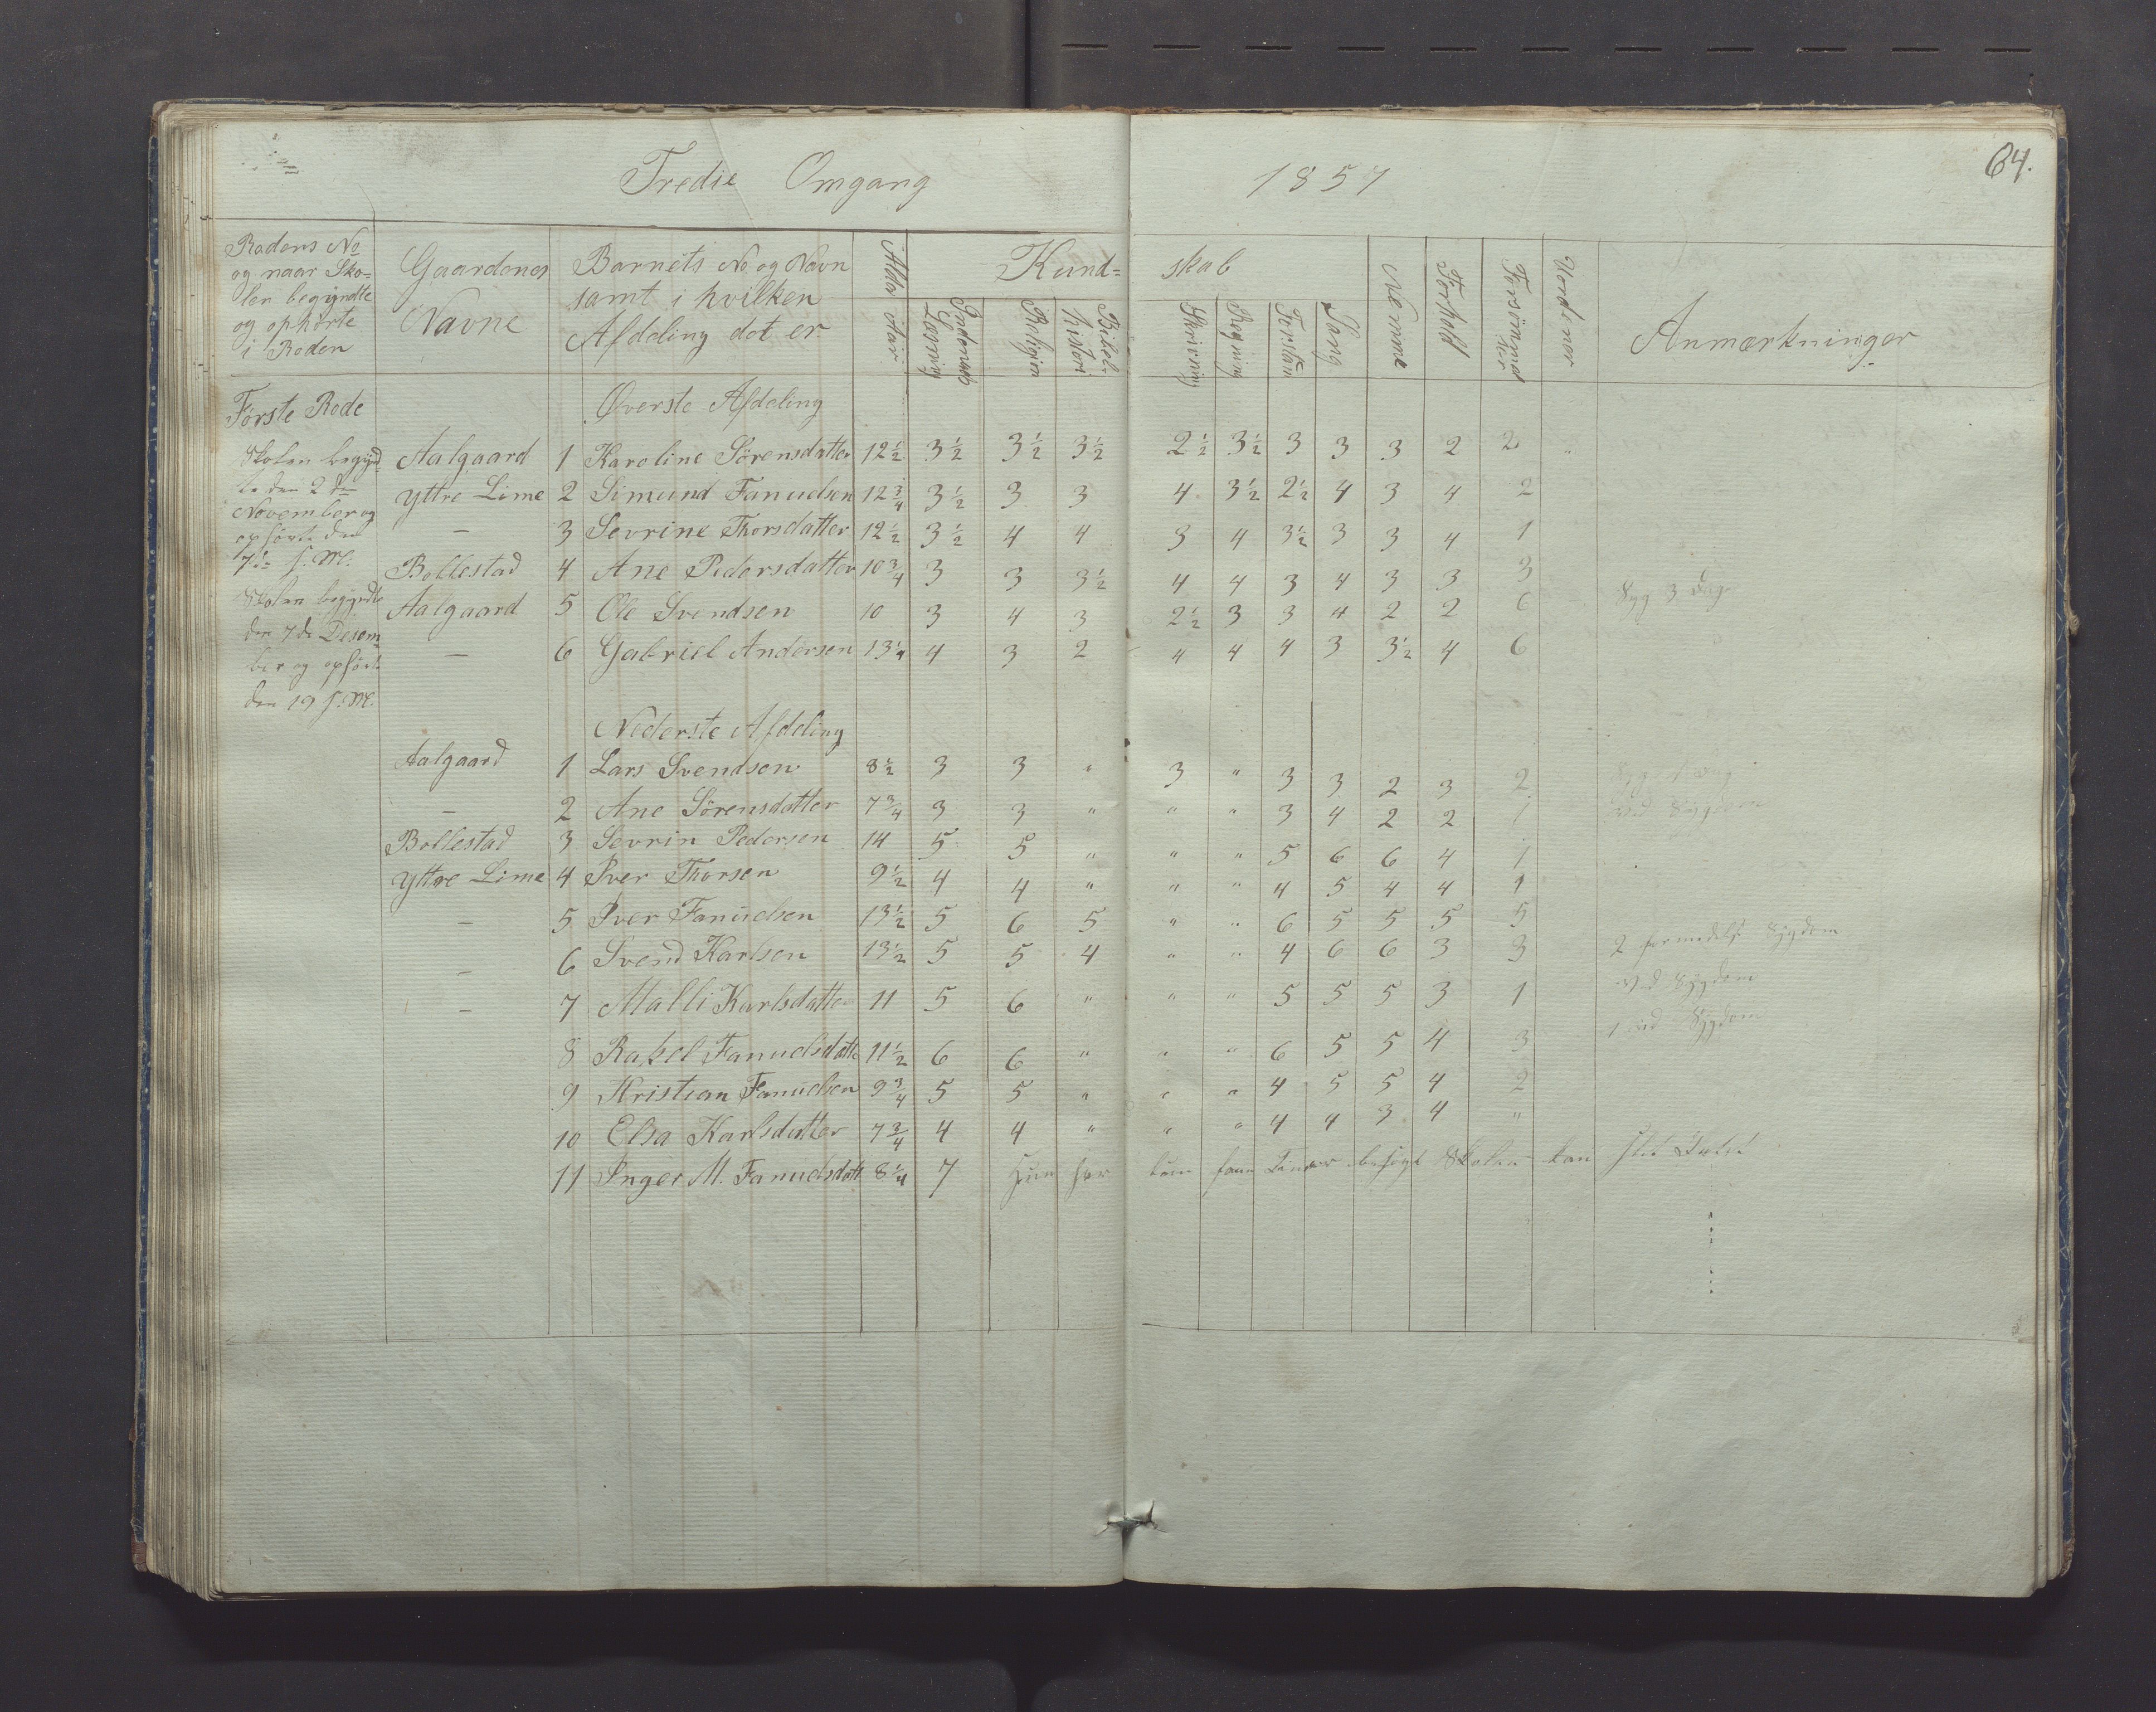 Tredie Omgang 1857 64.
Rodens No og naar Sko=
len begyndte
og ophørte
i Roden
Gaardenes
Navne
Barnets No og Navn
samt i hvilken
Afdeling det er
Alder Aar
Kund= skab
Indenads Læsning
Religion
Bibel-histori
Skrivning
Regning
Forstan
Sang
Nemme
Forhold
Forsømmelser
Anmærkninger
Første Rode Øverste Afdeling
Skolen begynd
te den 2de
November og
ophørte den
7de s. M.
Skolen begyndte
den 7de Desem
ber og ophørte
den 19 s. M.
Aalgaard 1 Karoline Sørensdatter 12 1/2 3 1/2 3 1/2 3 1/2 2 1/2 3 1/2 3 3 3 2 2 "
Yttre Lime 2 Simund Fanuelsen 12 3/4 3 1/2 3 3 4 3 1/2 2 1/2 4 3 4 2
— 3 Sevrine Thorsdatter 12 1/2 3 1/2 4 4 3 4 3 1/2 3 3 4 1
Bollestad 4 Ane Pedersdatter 10 3/4 3 3 3 1/2 4 4 3 4 3 3 3 Syg 3 Dag
Aalgaard 5 Ole Svendsen 10 3 4 3 2 1/2 3 3 4 2 2 6
— 6 Gabriel Andersen 13 1/4 4 3 2 4 4 4 3 3 1/2 4 6
Nederste Afdeling
Aalgaard 1 Lars Svendsen 8 1/2 3 3 " 3 " 3 3 2 3 2 Syg
— 2 Ane Sørensdatter 7 3/4 3 3 " " " 3 4 2 2 1 ved Sygdom
Bollestad 3 Sevrin Pedersen 14 5 5 " " " 5 6 6 4 1
Yttre Lime 4 Iver Thorsen 9 1/2 4 4 " " " 4 5 4 4 1
— 5 Iver Fanuelsen 13 1/2 5 6 5 " " 6 5 5 5 5
— 6 Svend Karlsen 13 1/2 5 5 4 " " 4 6 6 3 3 2 formedelst Sygdom
— 7 Malli Karlsdatter 11 5 6 " " " 5 5 5 3 1 ved Sygdom
8 Rakel Fanuelsdatte 11 1/2 6 6 " " " 6 5 5 4 3 1 ved Sygdom
9 Kristian Fanuelsen 9 3/4 5 5 " " " 4 5 5 4 2
10 Elsa Karlsdatter 7 3/4 4 4 " " " 4 4 3 4 "
11 Inger M. Fanuelsdatt 8 1/4 7 Hun har kun besøgt Skolen kan